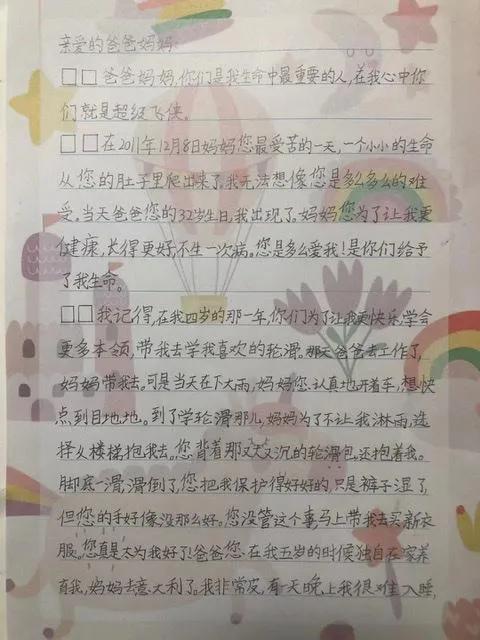 亲爱的爸爸妈妈:
□□爸爸妈妈,你们是我生命中最重要的人,在我心中你
们就是超级飞侠。
□□在2011年12月8日妈妈您最受苦的一天,一个小小的生命
从您的肚子里爬出来了,我无法想像您是多么多么的难
受。当天爸爸您的32岁生日,我出现了。妈妈您为了让我更
健康,长得更好,不生一次病。您是多么爱我!是你们给予
了我生命。
□□我记得,在我四岁的那一年,你们为了让我更快乐,学会
更多本领,带我去学我喜欢的轮滑。那天爸爸去工作了,
妈妈带我去。可是当天在下大雨,妈妈您认真地开着车,想快
点到目地地。到了学轮滑那儿,妈妈为了不让我淋雨,选
择从楼梯抱我去,您背着那又大又沉的轮滑包,还抱着我。
脚底一滑,滑倒了,您把我保护得好好的,只是裤子湿了,
但您的手好像没那么好。您没管这个事马上带我去买新衣
服。您真是太为我好了!爸爸您在我五岁的时候独自在家养
育我,妈妈去意大利了。我非常皮,有一天晚上我很难入睡,